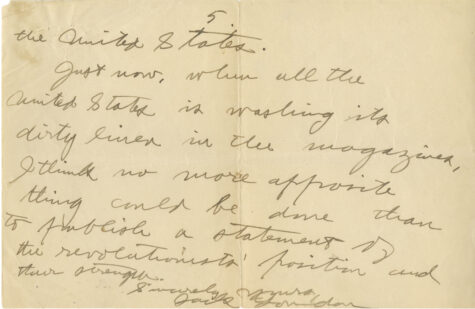 5.
the United States.
Just now, when all the
United States is washing its
dirty linen in the magazines,
I think no more apposite
thing could be done than
to publish a statement of
the revolutionists' position and
their strength.
Sincerely yours
Jack London